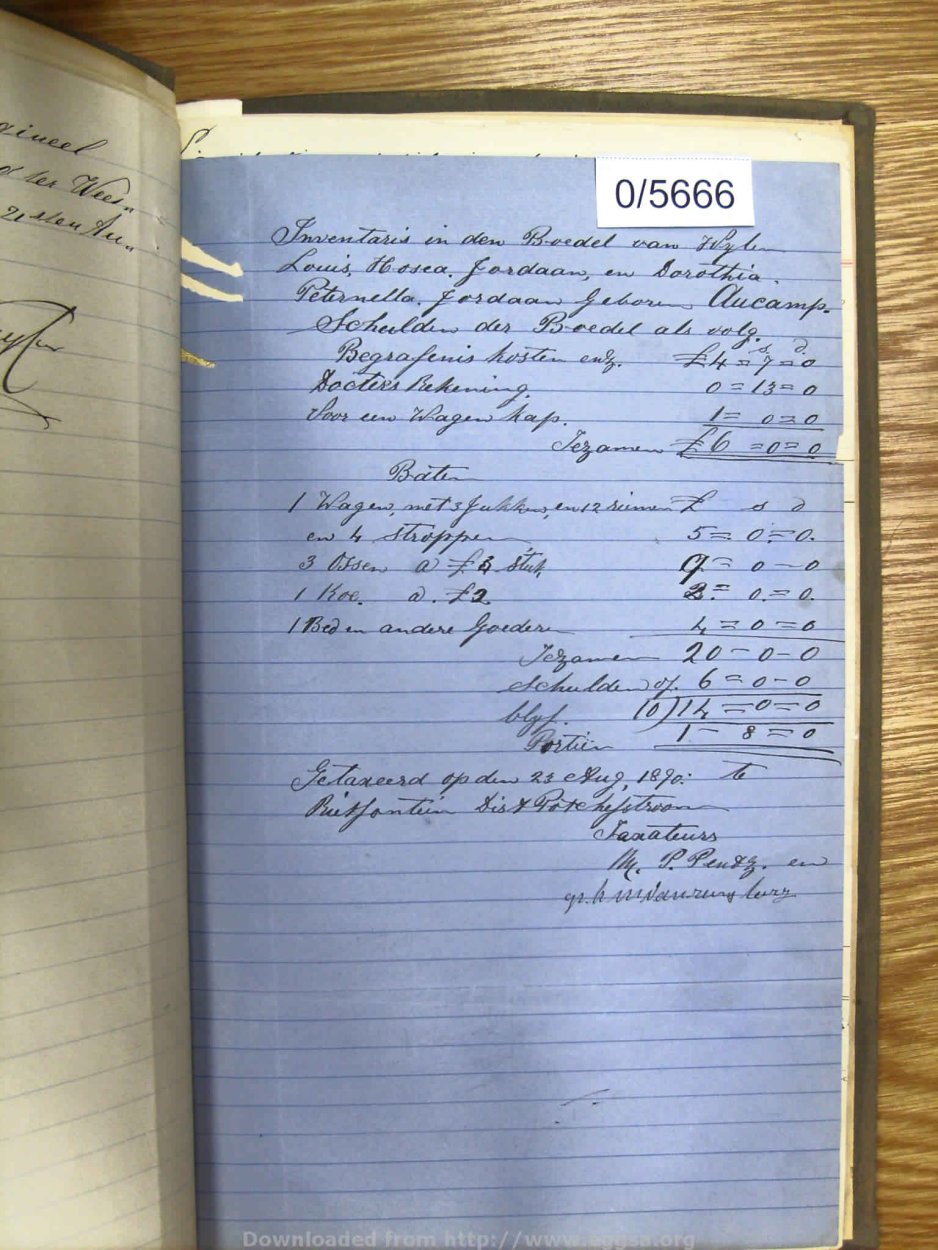 gineel
ter Wees
21sten Au
0/5666
Inventaris in den Boedel van Wylen
Louis, Hosea, Jordaan, en Dorothia
Peternella. Jordaan Geboren, Aucamp.
Schulden der Boedel als volg.
s. d.
Begrafenis kosten enz. £4=7=0
Docters Rekening. 0=13=0
Voor een Wagen kap. 1=0=0
Tezamen £6=0=0
Baten
1 Wagen, met 3 Jukken, en 12 riemen £ s d
en 4 stroppen 5=0=0.
3 Ossen a £3 stuk 9=0-0
1 Koe. a. £2 2=0.=0.
1 Bed en andere Goederen 4=0=0
Tezamen 20-0-0
Schulden of. 6=0-0
blyf. 10)14=0=0
Portien 1-8=0
Getaxeerd op den 23 Aug, 1890: te
Rietfontein Dist Potchefstroom
Taxateurs
M. P. Pentz. en
Downloaded from http://www.eggsa.org